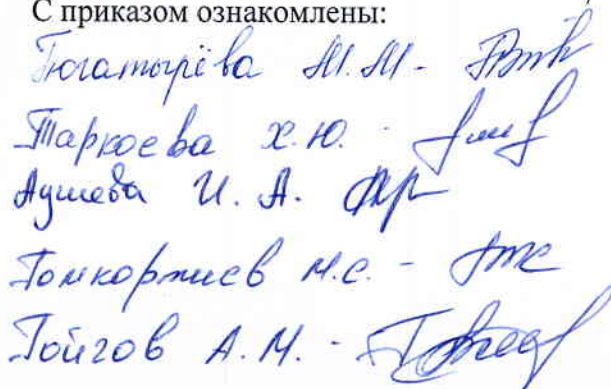 С приказом ознакомлены:
Богатырёва М.М. -
Таркоева Х.Ю. -
Аушева И.А.
Томкортиев М.С. -
Гойгов А.М. -